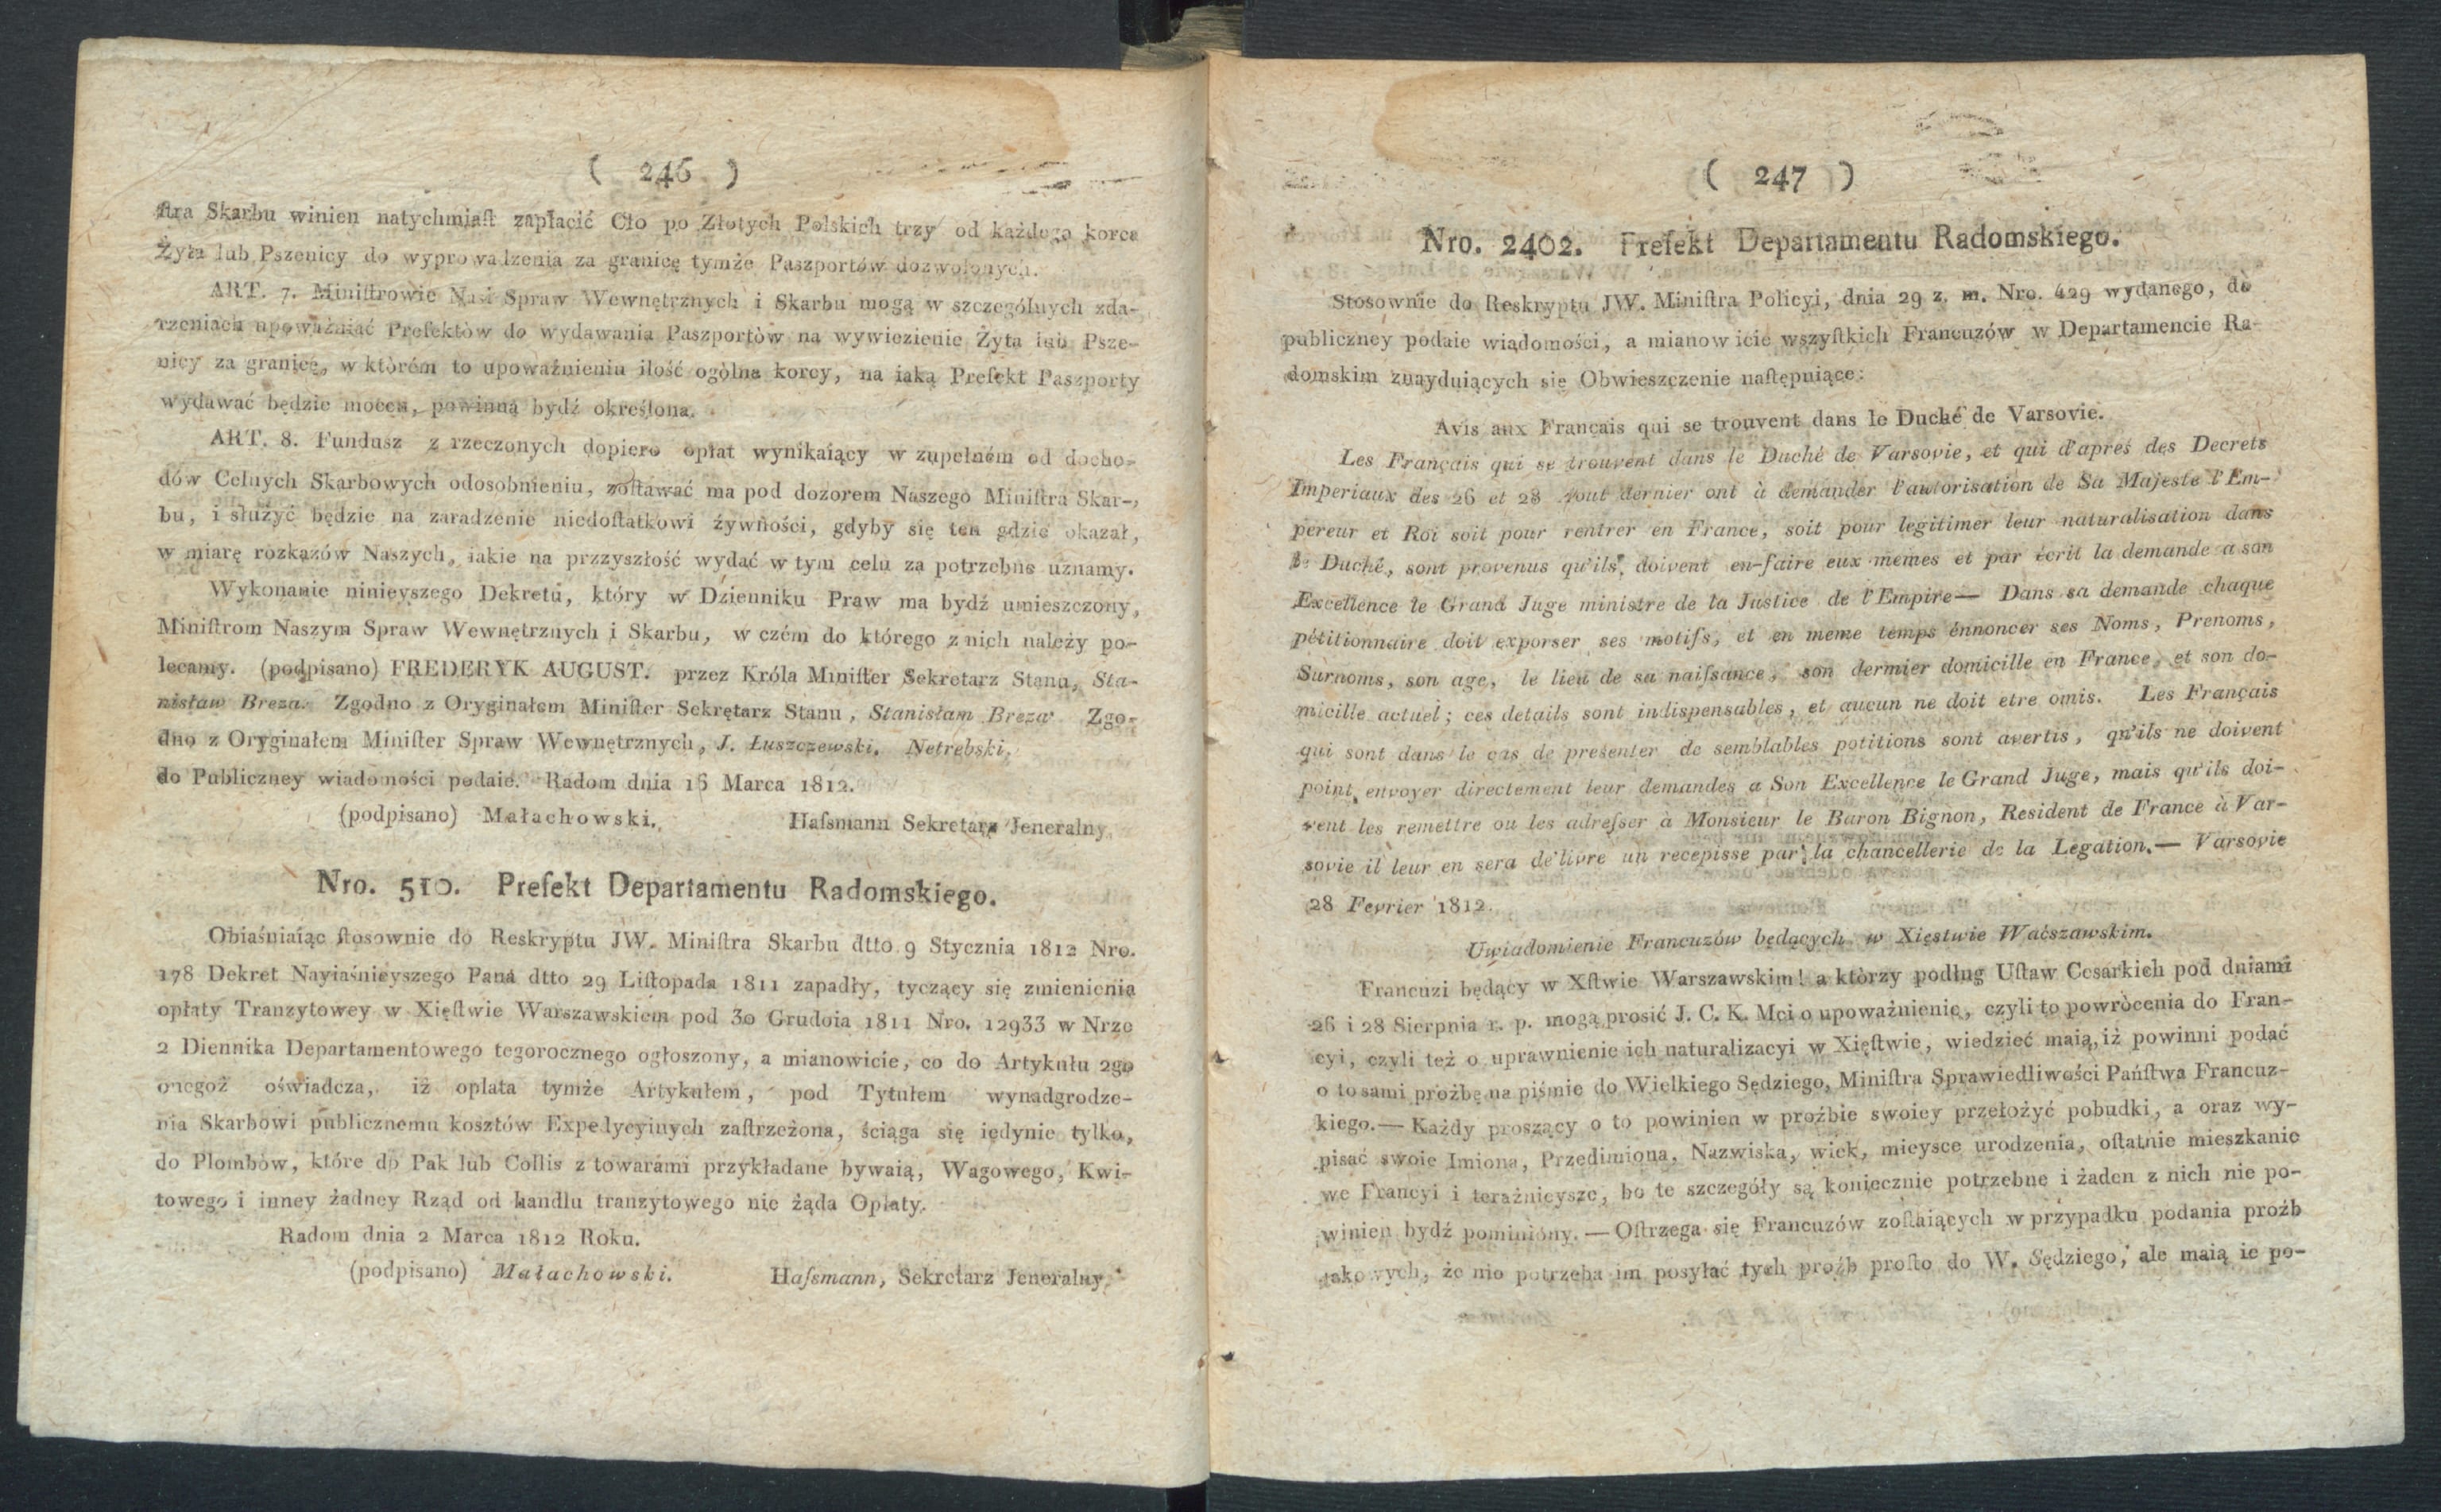 ( 246 )
ſtra Skarbu winien natychmiaſt zapłacić Cło po Złotych Polskich trzy od każdego korca
Żyta lub Pszenicy do wyprowadzenia za granicę tymże Paszportów dozwolonych.
ART. 7. Miniſtrowie Nasi Spraw Wewnętrznych i Skarbu mogą w szczególnych zda-
rzeniach upoważniać Prefektów do wydawania Paszportów na wywiezienie Żyta lub Psze-
nicy za granicę, w którém to upoważnieniu ilość ogòlna korcy, na iaką Prefekt Paszporty
wydawać będzie mocen, powinna bydź określona.
ART. 8. Fundusz z rzeczonych dopiero opłat wynikaiący w zupełném od docho-
dów Celnych Skarbowych odosobnieniu, zoſtawać ma pod dozorem Naszego Miniſtra Skar-
bu, i służyć będzie na zaradzenie niedoſtatkowi żywności, gdyby się ten gdzie okazał,
w miarę rozkazów Naszych, iakie na przzyszłość wydać w tym celu za potrzebne uznamy.
Wykonanie ninieyszego Dekretu, który w Dzienniku Praw ma bydź umieszczony,
Miniſtrom Naszym Spraw Wewnętrznych i Skarbu, w czém do którego z nich należy po-
lecamy. (podpisano) FREDERYK AUGUST. przez Króla Miniſter Sekretarz Stanu, Sta-
nisław Breza. Zgodno z Oryginałem Miniſter Sekretarz Stanu, Stanisłam Breza Zgo-
dno z Oryginałem Miniſter Spraw Wewnętrznych, J. Łuszczewski. Netrebski.
do Publiczney wiadomości podaie. Radom dnia 16 Marca 1812.
(podpisano) Małachowski. Haſsmann Sekretarz Jeneralny
Nro. 510. Prefekt Departamentu Radomskiego.
Obiaśniaiąc ſtosownie do Reskryptu JW. Miniſtra Skarbu dtto 9 Stycznia 1812 Nro.
178 Dekret Nayiaśnieyszego Pana dtto 29 Liſtopada 1811 zapadły, tyczący się zmienienia
opłaty Tranzytowey w Xięſtwie Warszawskiem pod 30 Grudnia 1811 Nro. 12933 w Nrze
2 Diennika Departamentowego tegorocznego ogłoszony, a mianowicie, co do Artykułu 2go
onegoż oświadcza, iż oplata tymże Artykułem, pod Tytułem wynadgrodze-
nia Skarbowi publicznemu kosztów Expedycyinych zaſtrzeżona, ściąga się iedynie tylko,
do Plombów, które do Pak lub Collis z towarami przykładane bywaią, Wagowego, Kwi-
towego i inney żadney Rząd od handlu tranzytowego nie żąda Opłaty.
Radom dnia 2 Marca 1812 Roku.
(podpisano) Małachowski. Haſsmann, Sekretarz Jeneralny.
( 247 )
Nro. 2402. Prefekt Departamentu Radomskiego.
Stosownie do Reskryptu JW. Miniſtra Policyi, dnia 29 z. m. Nro. 429 wydanego, do
publiczney podaie wiadomości, a mianowicie wszyſtkich Francuzów w Departamencie Ra-
domskim znayduiących się Obwieszczenie naſtępuiące:
Avis aux Français qui se trouvent dans le Duché de Varsovie.
Les Français qui se trouvent dans le Duché de Varsovie, et qui d'apreś des Decrets
Imperiaux des 26 et 28 Aout dernier ont à demander l'autorisation de Sa Majeste l'Em-
pereur et Roi soit pour rentrer en France, soit pour legitimer leur naturalisation dans
le Duché, sont provenus qu'ils, doivent en-faire eux memes et par écrit la demande a son
Excellence le Grand Juge ministre de la Justice de l'Empire— Dans sa demande chaque
pétitionnaire doit exporser ses motifs, et en meme temps énnoncer ses Noms, Prenoms,
Surnoms, son age, le lieu de sa naiſsance, son dermier domicille en France, et son do-
micille actuel; ces details sont indispensables, et aucun ne doit etre omis. Les Français
qui sont dans le cas de presenter de semblables potitions sont avertis, qu'ils ne doivent
point envoyer directement leur demandes a Son Excellence le Grand Juge, mais qu'ils doi-
vent les remettre ou les adreſser à Monsieur le Baron Bignon, Resident de France à Var-
sovie il leur en sera de'livre un recepisse par la chancellerie de la Legation.— Varsovie
28 Fevrier 1812.
Uwiadomienie Francuzów będących w Xięstwie Waćszawskim.
Francuzi będący w Xſtwie Warszawskim! a którzy podług Uſtaw Cesarkich pod dniami
26 i 28 Sierpnia r. p. mogą prosić J. C. K. Mci o upoważnienie, czyli to powròcenia do Fran-
cyi, czyli też o uprawnienie ich naturalizacyi w Xięſtwie, wiedzieć maią, iż powinni podać
o to sami proźbę na piśmie do Wielkiego Sędziego, Miniſtra Sprawiedliwości Pańſtwa Francuz-
kiego.— Każdy proszący o to powinien w proźbie swoiey przełożyć pobudki, a oraz wy-
pisać swoie Imiona, Przedimiona, Nazwiska, wiek, mieysce urodzenia, oſtatnie mieszkanie
we Francyi i teraźnieysze, bo te szczegóły są koniecznie potrzebne i żaden z nich nie po-
winien bydź pominióny. — Oſtrzega się Francuzów zoſtaiących w przypadku podania proźb
takowych, że nie potrzeba im posyłać tych proźb proſto do W. Sędziego, ale maią ie po-